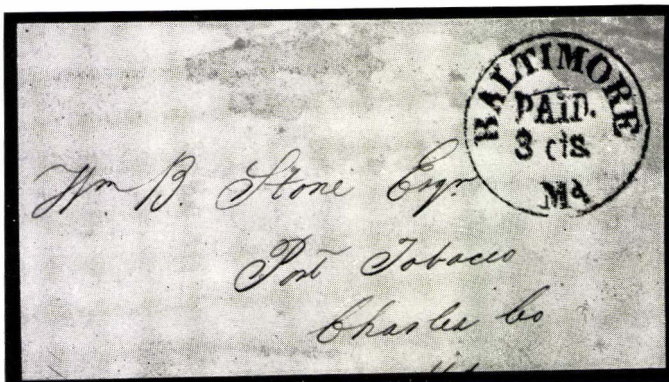 BALTIMORE
PAID.
3 cts.
Md
Wm B. Stone Esqr.
Port Tobacco
Charles Co